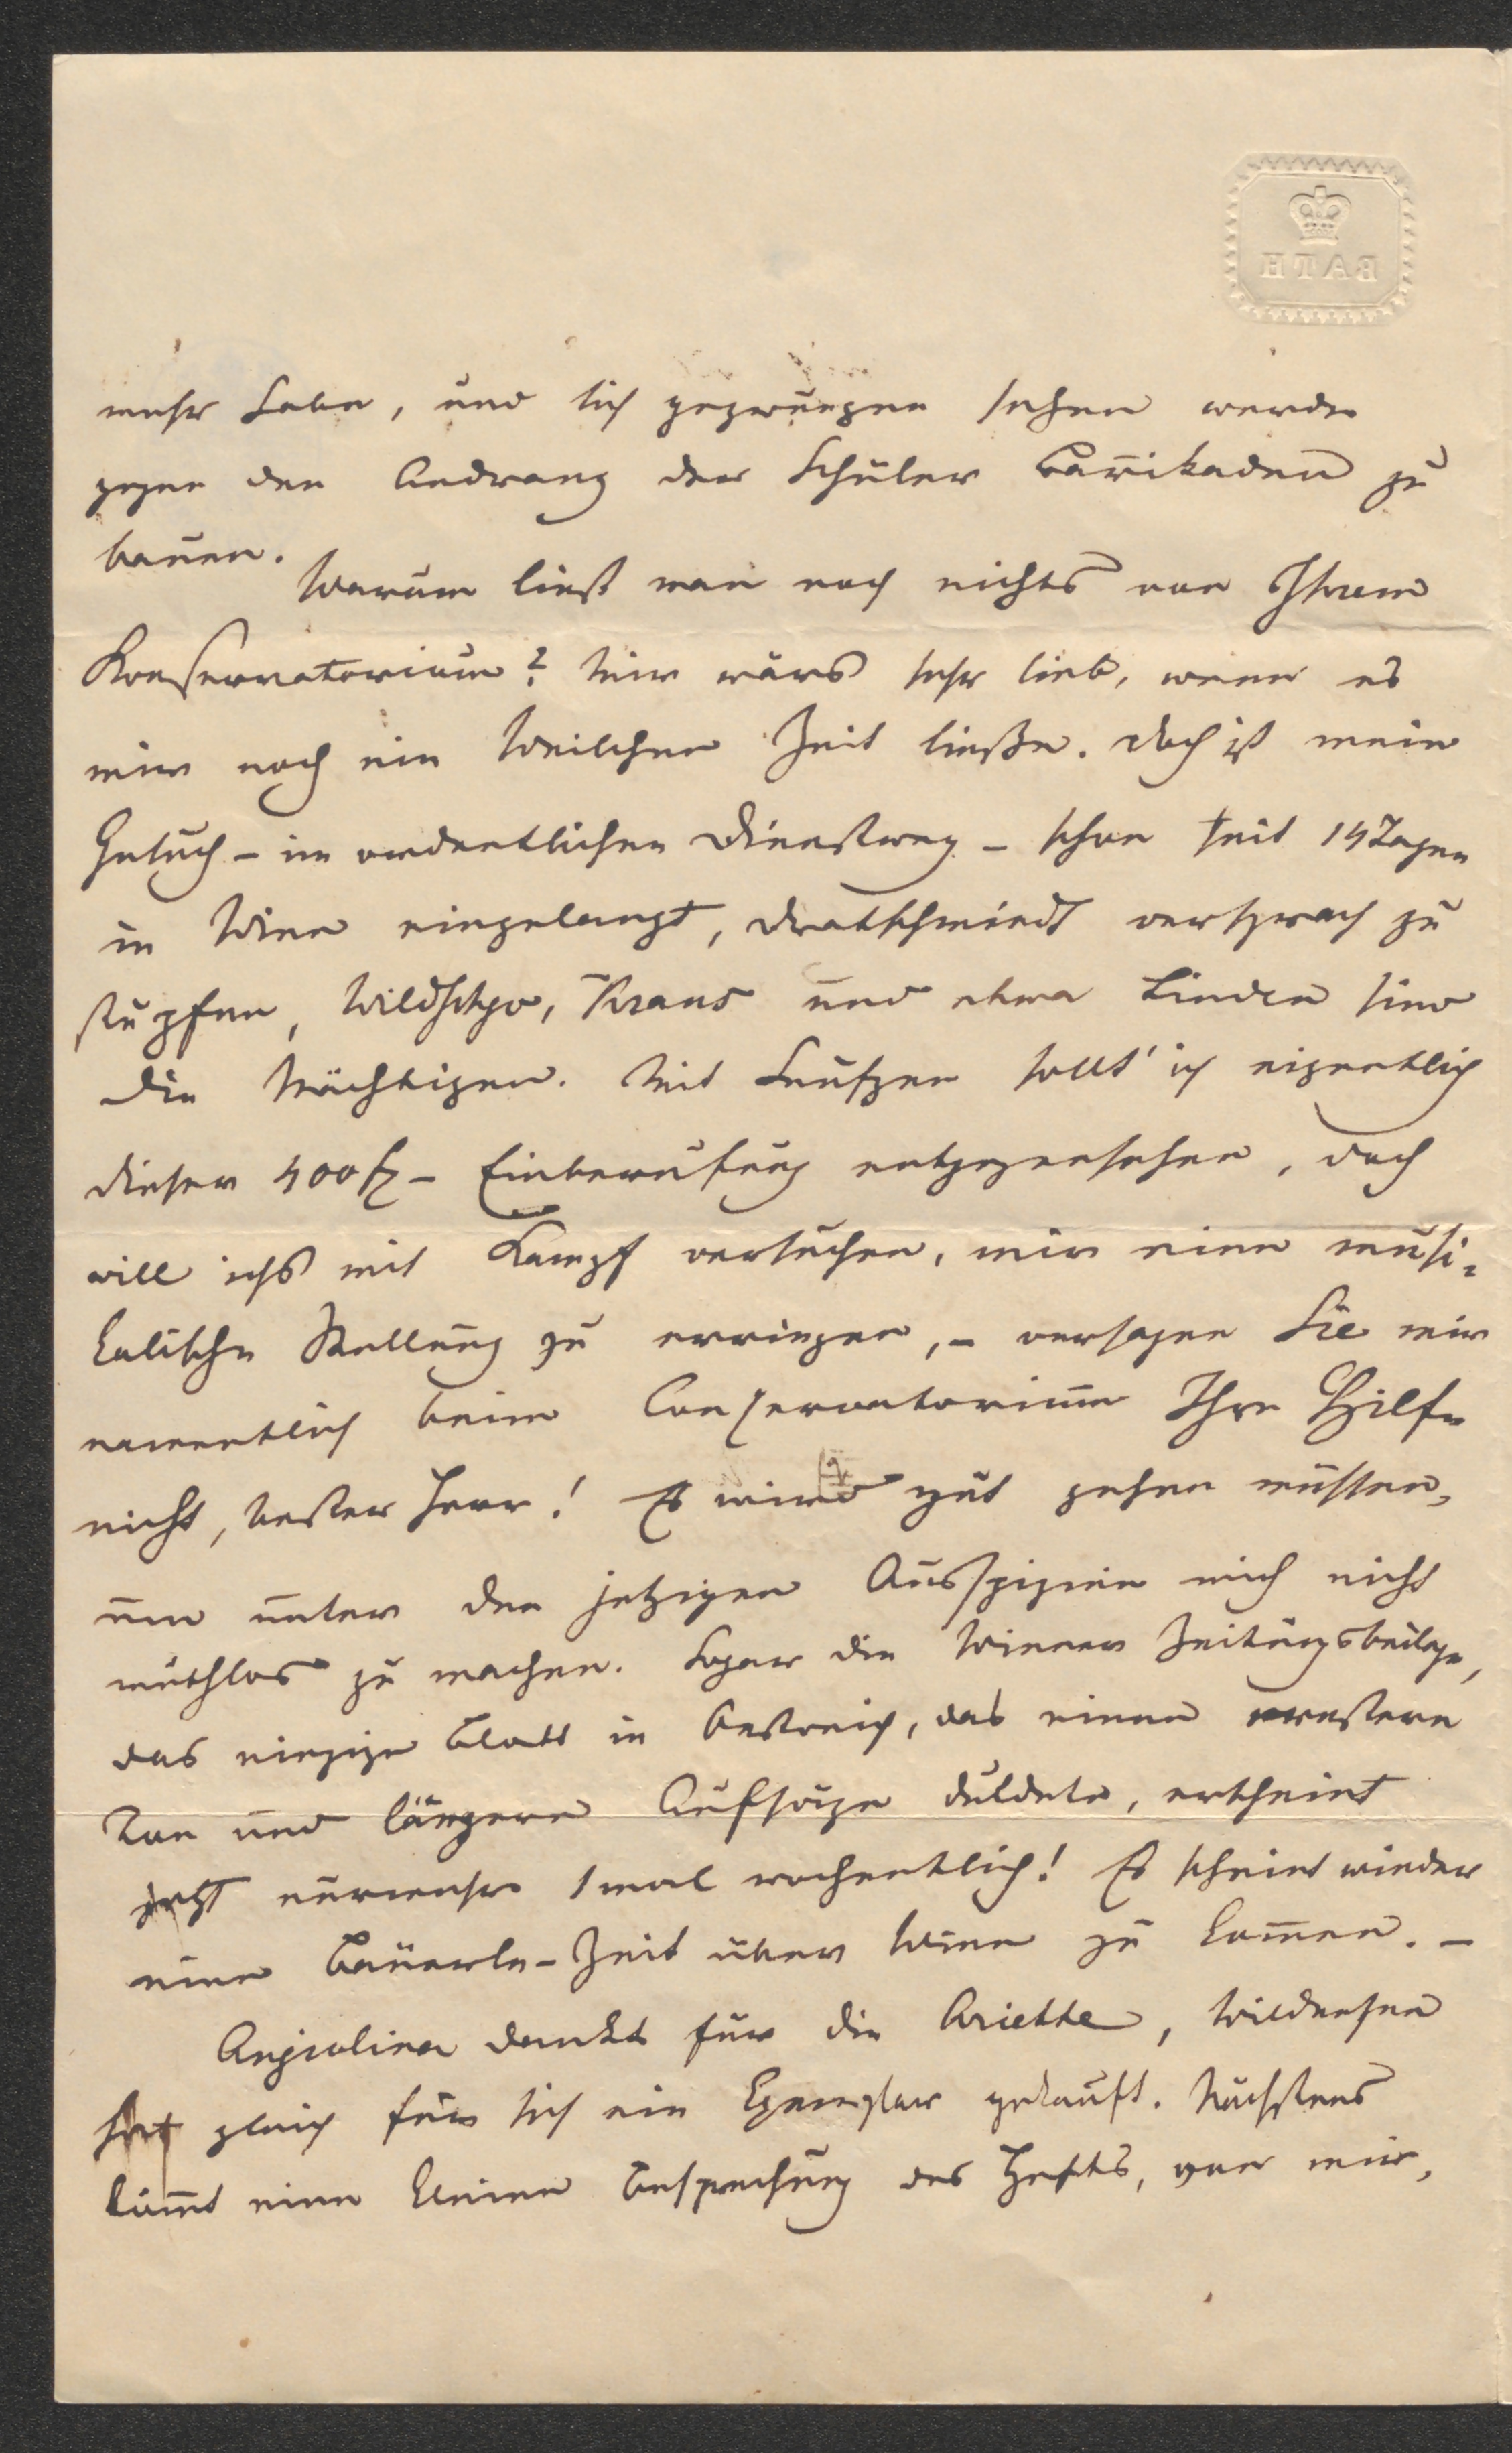 BATH
mehr habe, und sich gezwungen sehen werde
gegen den Andrang der Schüler Barrikaden zu
bauen.
Warum ließt man noch nichts von Ihrem
Konservatorium? Mir wärs sehr lieb, wenn es
mir noch ein Weilchen Zeit ließe. Doch ist mein
Gesuch – im ordentlichen Dienstweg – schon seit 14 Tagen
in Wien eingelangt, Dratschmiedt versprach zu
stupfen, Kraus und etwa Linden sind
die Mächtigen. Mit Seufzen sollt' ich eigentlich
dieser 400 fl – Einberufung entgegensehen, doch
will ichs mit Kampf versuchen, mir eine musi=
kalische Stellung zu erringen, – versagen Sie mir
namentlich beim Conservatorium Ihre Hilfe
nicht, bester Herr! Es wird gut gehen müssen,
um unter den jetzigen Auspizien mich nicht
muthlos zu machen. Sogar die Wiener Zeitungsbeilage,
das einzige Blatt in Oestreich, das einen ernstern
Ton und längere Aufsäze duldete, erscheint
jetzt nurmehr 1 mal wochentlich! Es scheint wieder
eine Bäuerle-Zeit über Wien zu kom̅en. –
Angiolina dankt für die Ariette,
hat gleich für sich ein Exemplar gekauft. Nächstens
kom̅t eine kleine Besprechung des Hefts, von mir,